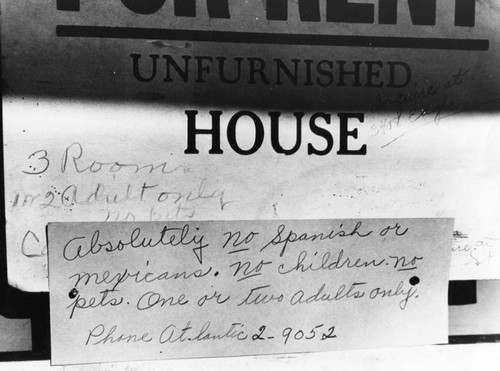 FOR RENT
UNFURNISHED
HOUSE
3 Rooms
1 or 2 Adult only
no pets
Absolutely no Spanish or
mexicans. no children. no
pets. One or two adults only.
Phone At.lantic 2-9052